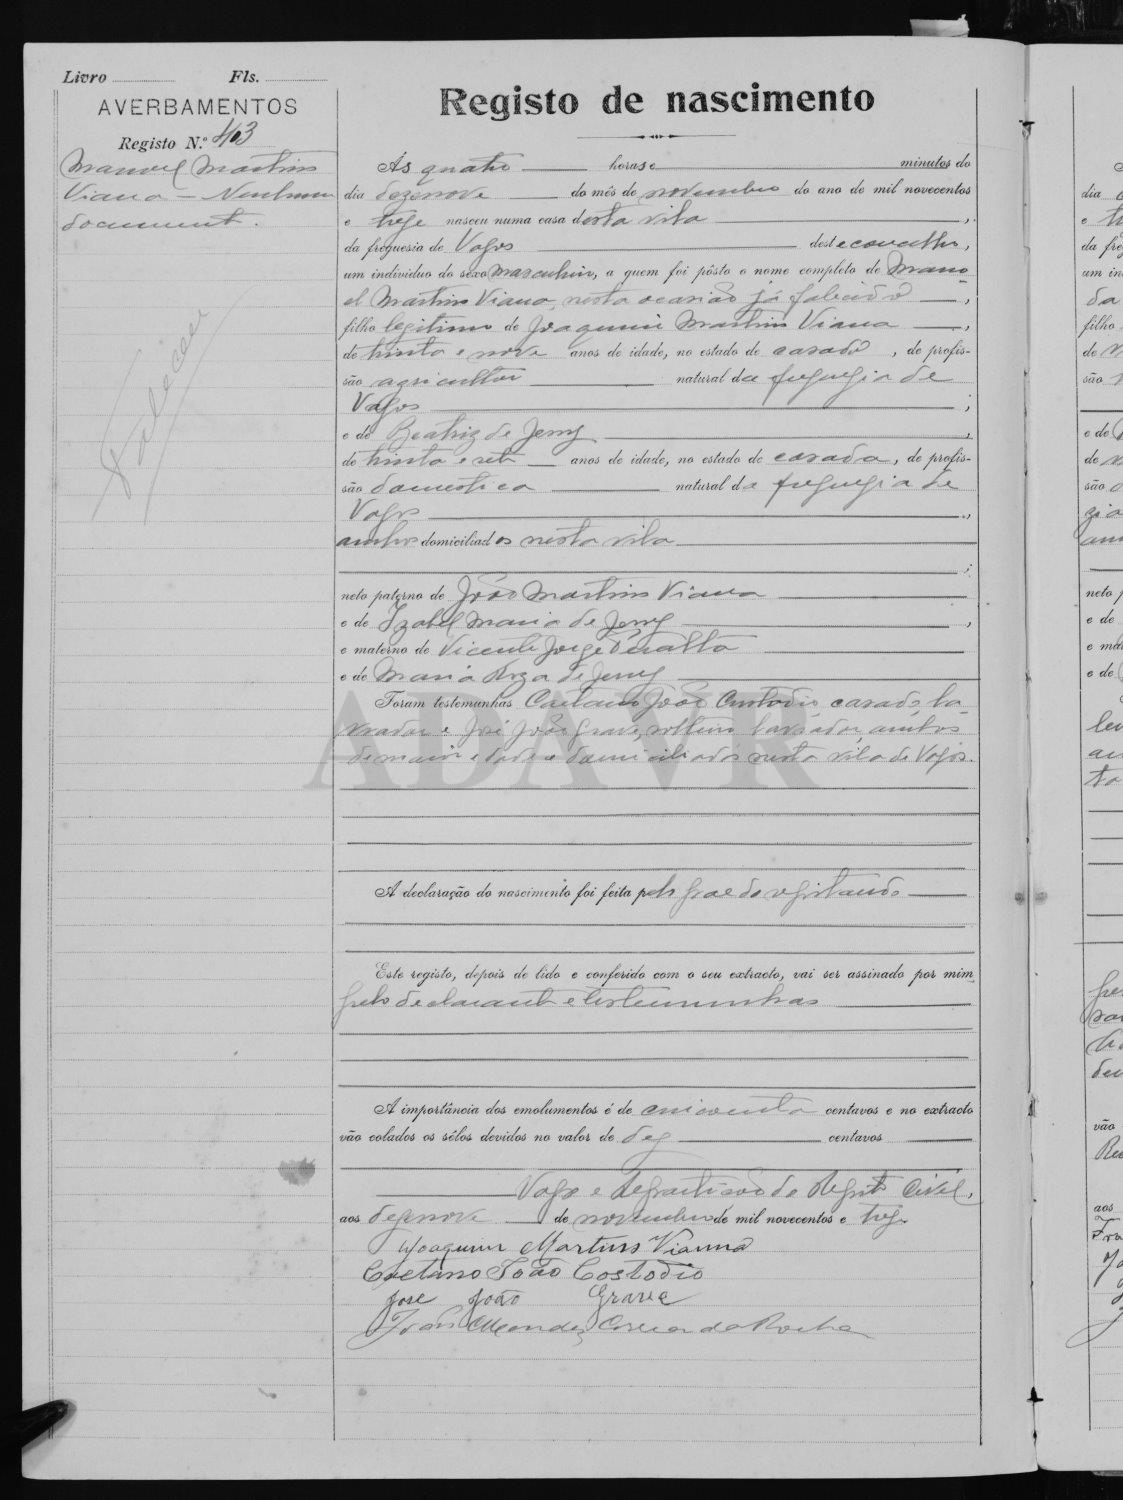 Livro Fls.
AVERBAMENTOS
Registo N.º 413
Manuel Martins
Viana — Nenhum
document.
Faleceu
Registo de nascimento
Ás quatro horas e minutos do
dia dezenove do mês de novembro do ano de mil novecentos
e treze nasceu numa casa desta vila,
da freguesia de Vagos deste concelho,
um individuo do sexo masculino, a quem foi pôsto o nome completo de Manu
el Martins Viana, nesta ocasião já falecido,
filho legitimo de Joaquim Martins Viana,
de trinta e nove anos de idade, no estado de casado, de profis-
são agricultor natural da freguezia de
Vagos;
e de Beatriz de Jesus,
de trinta e sete anos de idade, no estado de casada, de profis-
são domestica natural da freguezia de
Vagos,
ambos domiciliados nesta vila
;
neto paterno de João Martins Viana
e de Izabel Maria de Jesus,
e materno de Vicente Jorge Peralta
e de Maria Roza de Jesus
Foram testemunhas Caetano João Custodio, casado, la-
vrador e José João Grave, solteiro, lavrador, ambos
de maior edade e domiciliados nesta vila de Vagos.
A declaração do nascimento foi feita pelo pae do registando
Este registo, depois de lido e conferido com o seu extracto, vai ser assinado por mim,
pelo declarante e testemunhas
A importância dos emolumentos é de cincoenta centavos e no extracto
vão colados os sêlos devidos no valor de dez centavos
Vagos e Repartição do Registo Civil,
aos dezenove de novembro de mil novecentos e treze.
Joaquim Martins Vianna
Caetano João Costodio
Jose João Grave
João Mendes Correia da Rocha
ADAVR